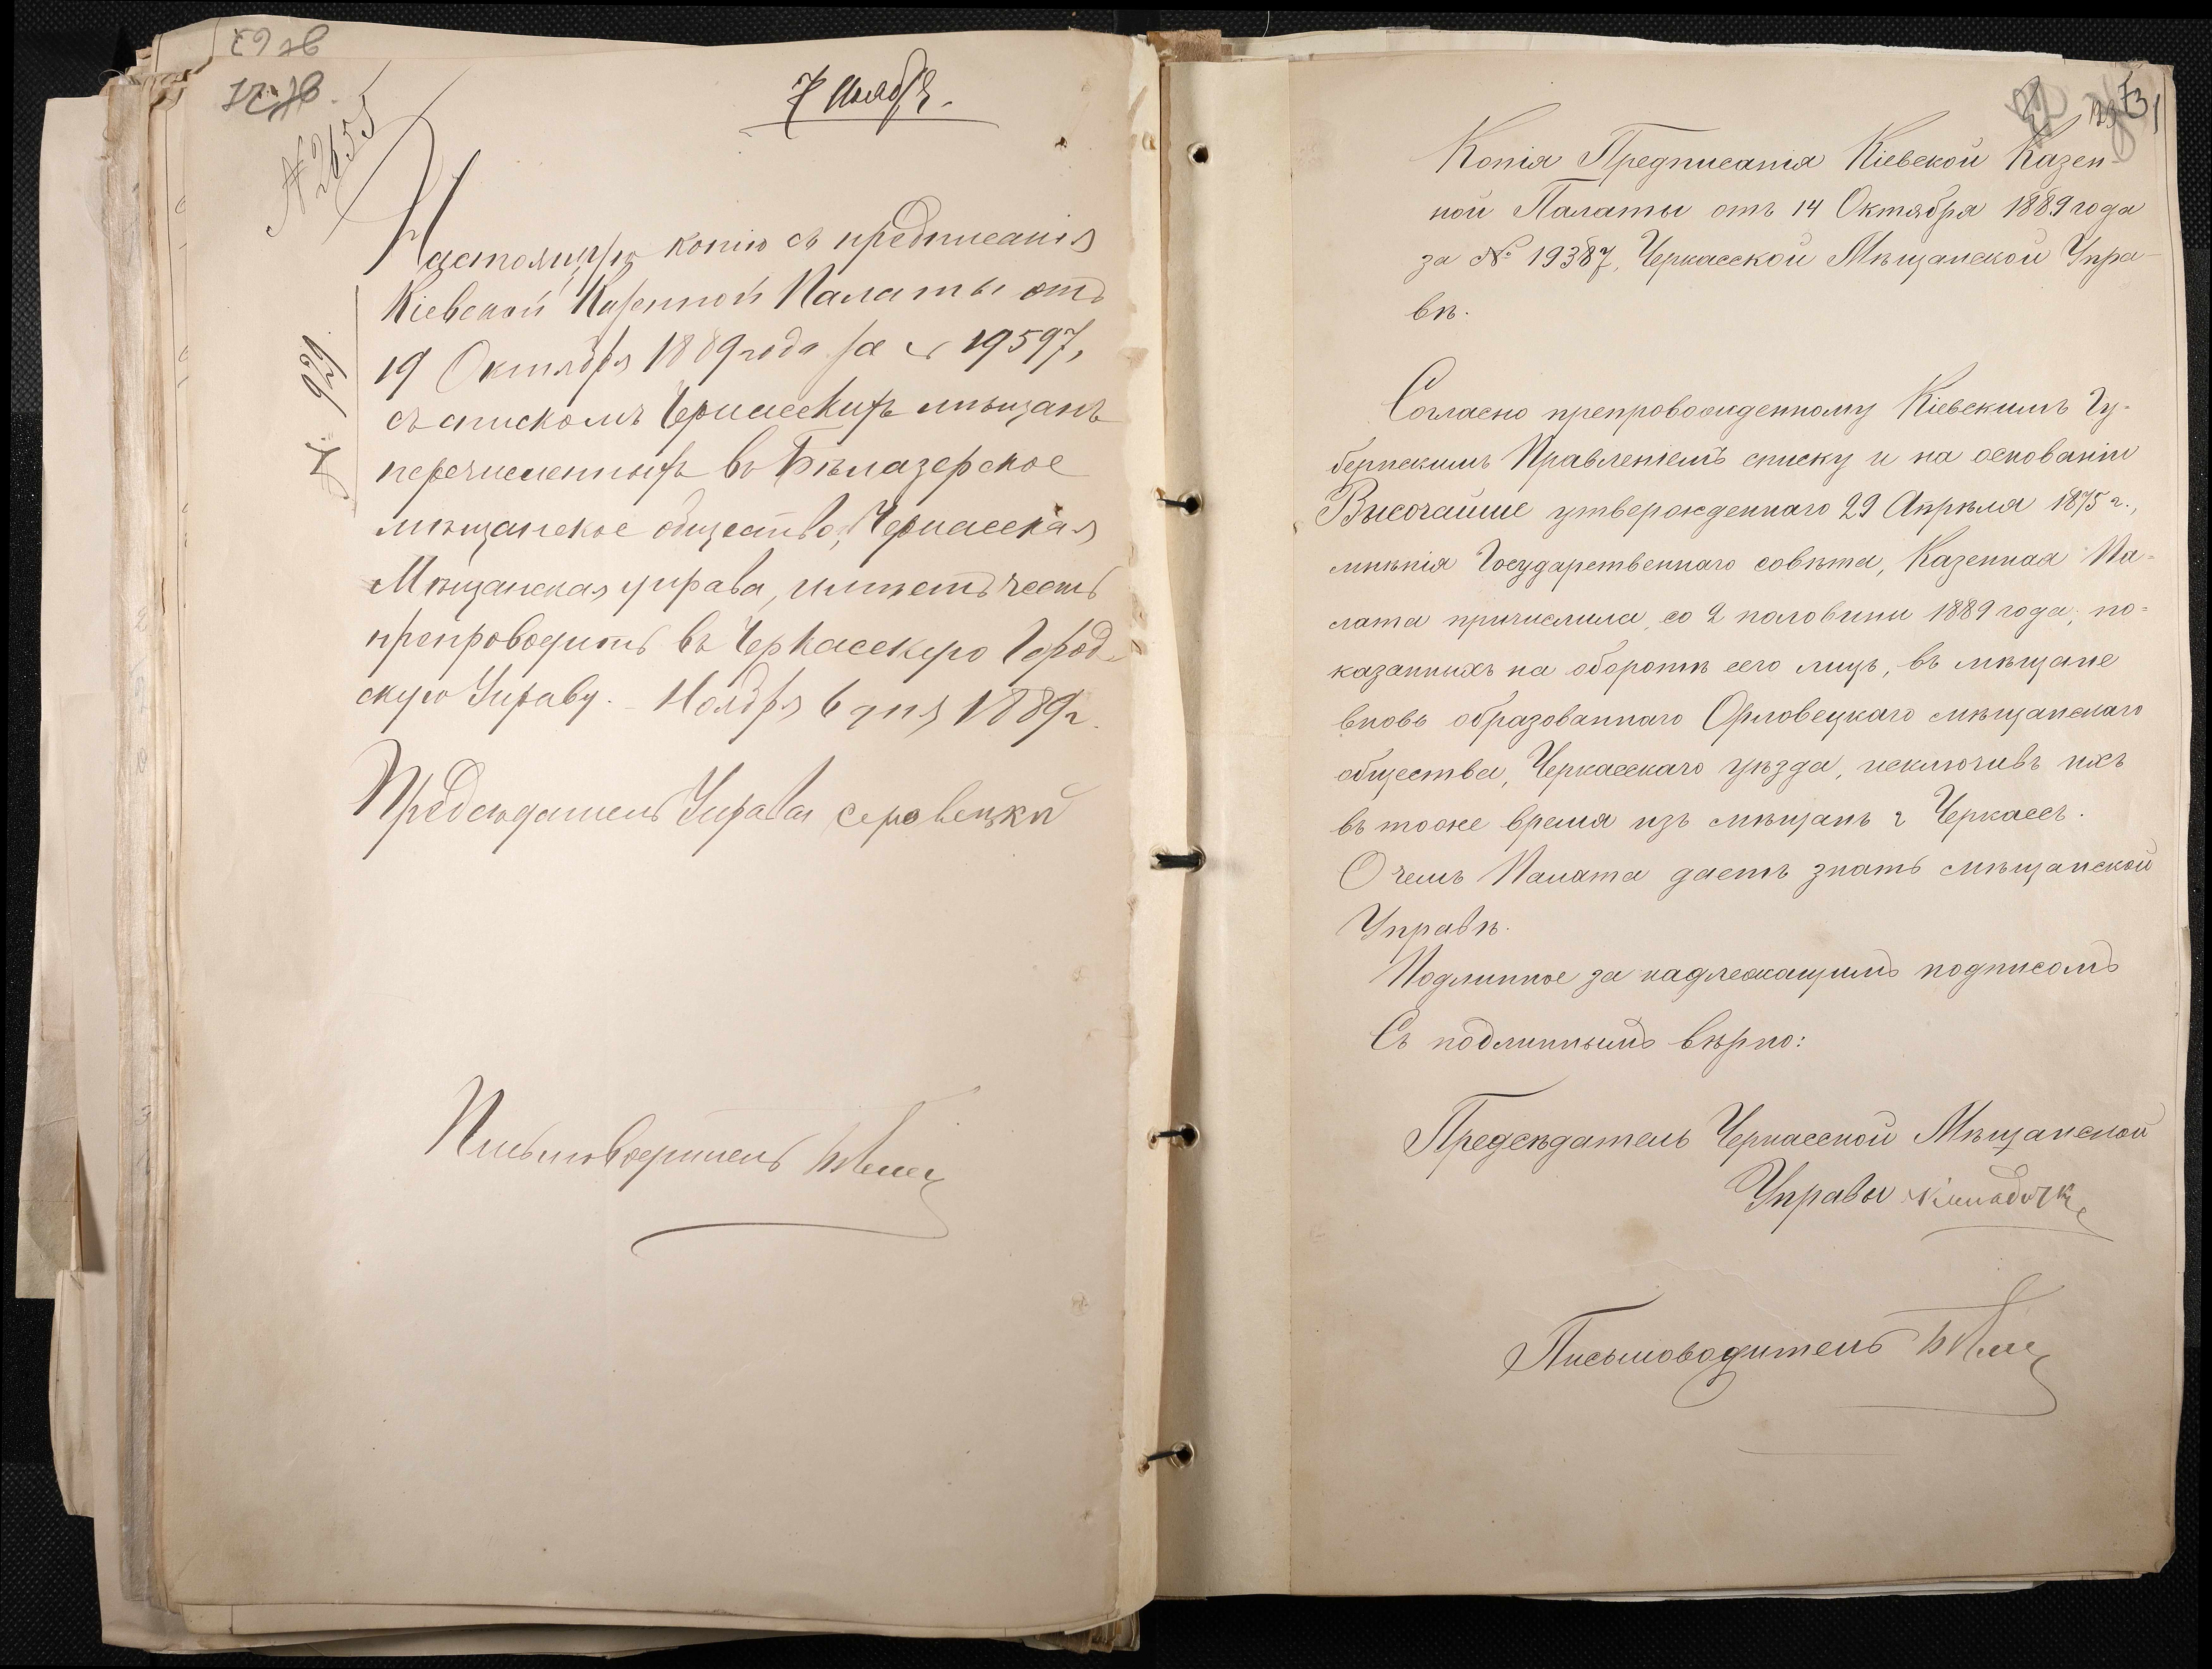 7 Ноября.
№ 2655
Настоящую копію съ предписанія
Кіевской Казенной Палаты отъ
19 Октября 1889 года за № 19597,
съ спискомъ Черкасскихъ мѣщанъ
перечисленныхъ въ Бѣлазерское
мѣщанское общество, Черкасская
Мѣщанская управа, имѣетъ честь
препроводить въ Черкасскую Город-
скую Управу. Ноября 6 дня 1889 г.
№ 921
Предсѣдатель Управы
Письмоводитель
73
Копія Предписанія Кіевской Казен-
ной Палаты отъ 14 Октября 1889 года
за № 19387, Черкасской Мѣщанской Упра-
вѣ.
Согласно препровожденному Кіевскимъ Гу-
бернскимъ Правленіемъ списку и на основаніи
Высочайше утвержденнаго 29 Апрѣля 1875 г.,
мнѣнія Государственнаго совѣта, Казенная Па-
лата причислила со 2 половины 1889 года, по-
казанныхъ на оборотѣ сего лицъ, въ мѣщане
вновь образованнаго Орловецкаго мѣщанскаго
общества, Черкасскаго уѣзда, исключивъ ихъ
въ тоже время изъ мѣщанъ г Черкассъ.
О чемъ Палата даетъ знать мѣщанской
Управѣ.
Подлинное за надлежащимъ подписомъ
Съ подлиннымъ вѣрно:
Предсѣдатель Черкасской Мѣщанской
Управы
Письмоводитель